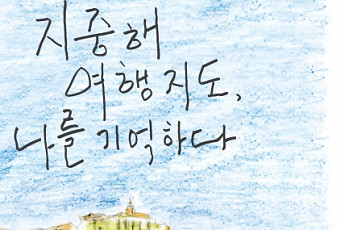 지중해
여행지도,
나를 기억하다